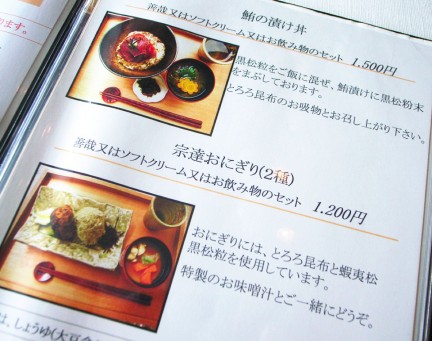 ます。
鮪の漬け丼
善哉又はソフトクリーム又はお飲み物のセット 1.500円
黒松粒をご飯に混ぜ、鮪漬けに黒松粉末
をまぶしております。
とろろ昆布のお吸物とお召し上がり下さい。
宗達おにぎり(2種)
善哉又はソフトクリーム又はお飲み物のセット 1.200円
おにぎりには、とろろ昆布と蝦夷松
黒松粒を使用しています。
特製のお味噌汁とご一緒にどうぞ。
は、しょうゆ(大豆